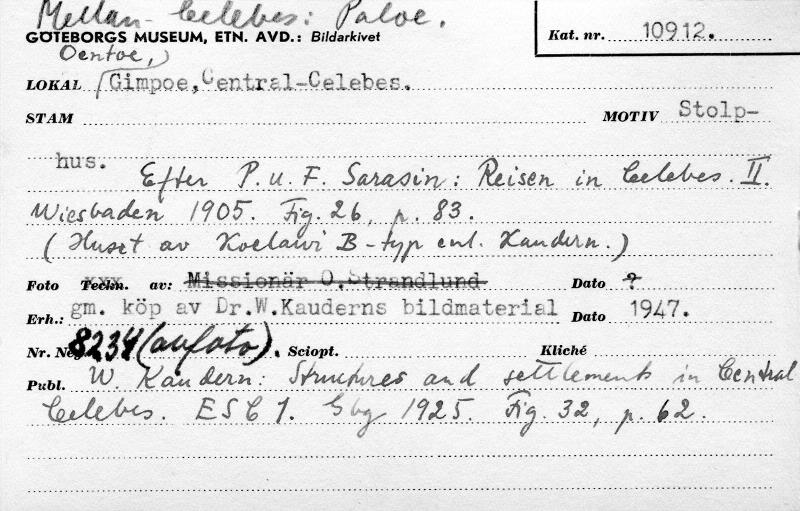 Mellan-Celebes: Paloe.
GÖTEBORGS MUSEUM, ETN. AVD.: Bildarkivet
Kat. nr. 10912.
Oentoe,
LOKAL (Gimpoe, Central-Celebes.
STAM
MOTIV Stolp-
hus.
Efter P. u. F. Sarasin: Reisen in Celebes. II.
Wiesbaden 1905. Fig. 26, p. 83.
(Huset av Koelawi B-typ enl. Kaudern.)
Foto Techn. av: Missionär O. Strandlund Dato ?
Erh.: gm. köp av Dr.W.Kauderns bildmaterial Dato 1947.
Nr. Neg. 8234 (avfoto). Sciopt. Kliché
Publ. W. Kaudern: Structures and settlements in Central
Celebes. ESC 1. Gbg 1925. Fig. 32, p. 62.